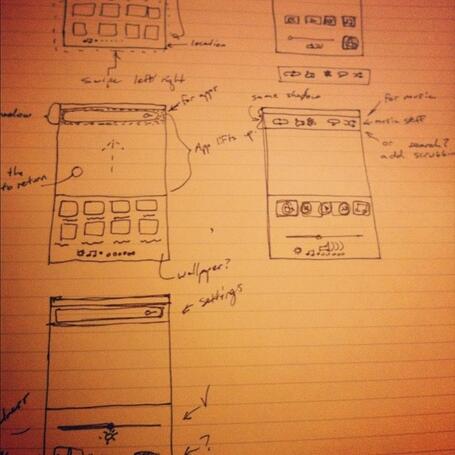 location
swipe left/right
for apps
same shadow
for music
music stuff
or search?
add scrubbin
App lifts up
the
to return
wallpaper?
settings
?